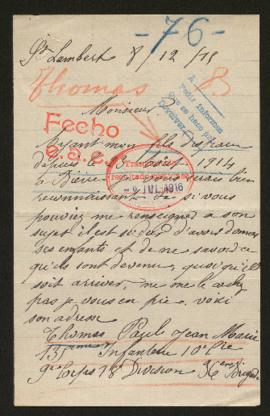 -76-
St Lambert 8/12/15
Thomas
B
Monsieur
Fecho
Ayant mon fils disparu
depuis le 1914
à Bièvre je vous serais bien
reconnaissante si vous
pouviez me renseigner à son
sujet il est si dur d'avoir donné
ses enfants et de ne savoir ce
qu'ils sont devenus, quoi qu'il
soit arriver, me me le cachez
pas je vous en prie. voici
son adresse
Thomas Paul Jean Marie
135ème Infanterie 10e Cie
9e Corps 18e Division 36ème Brigade
JUL 1916